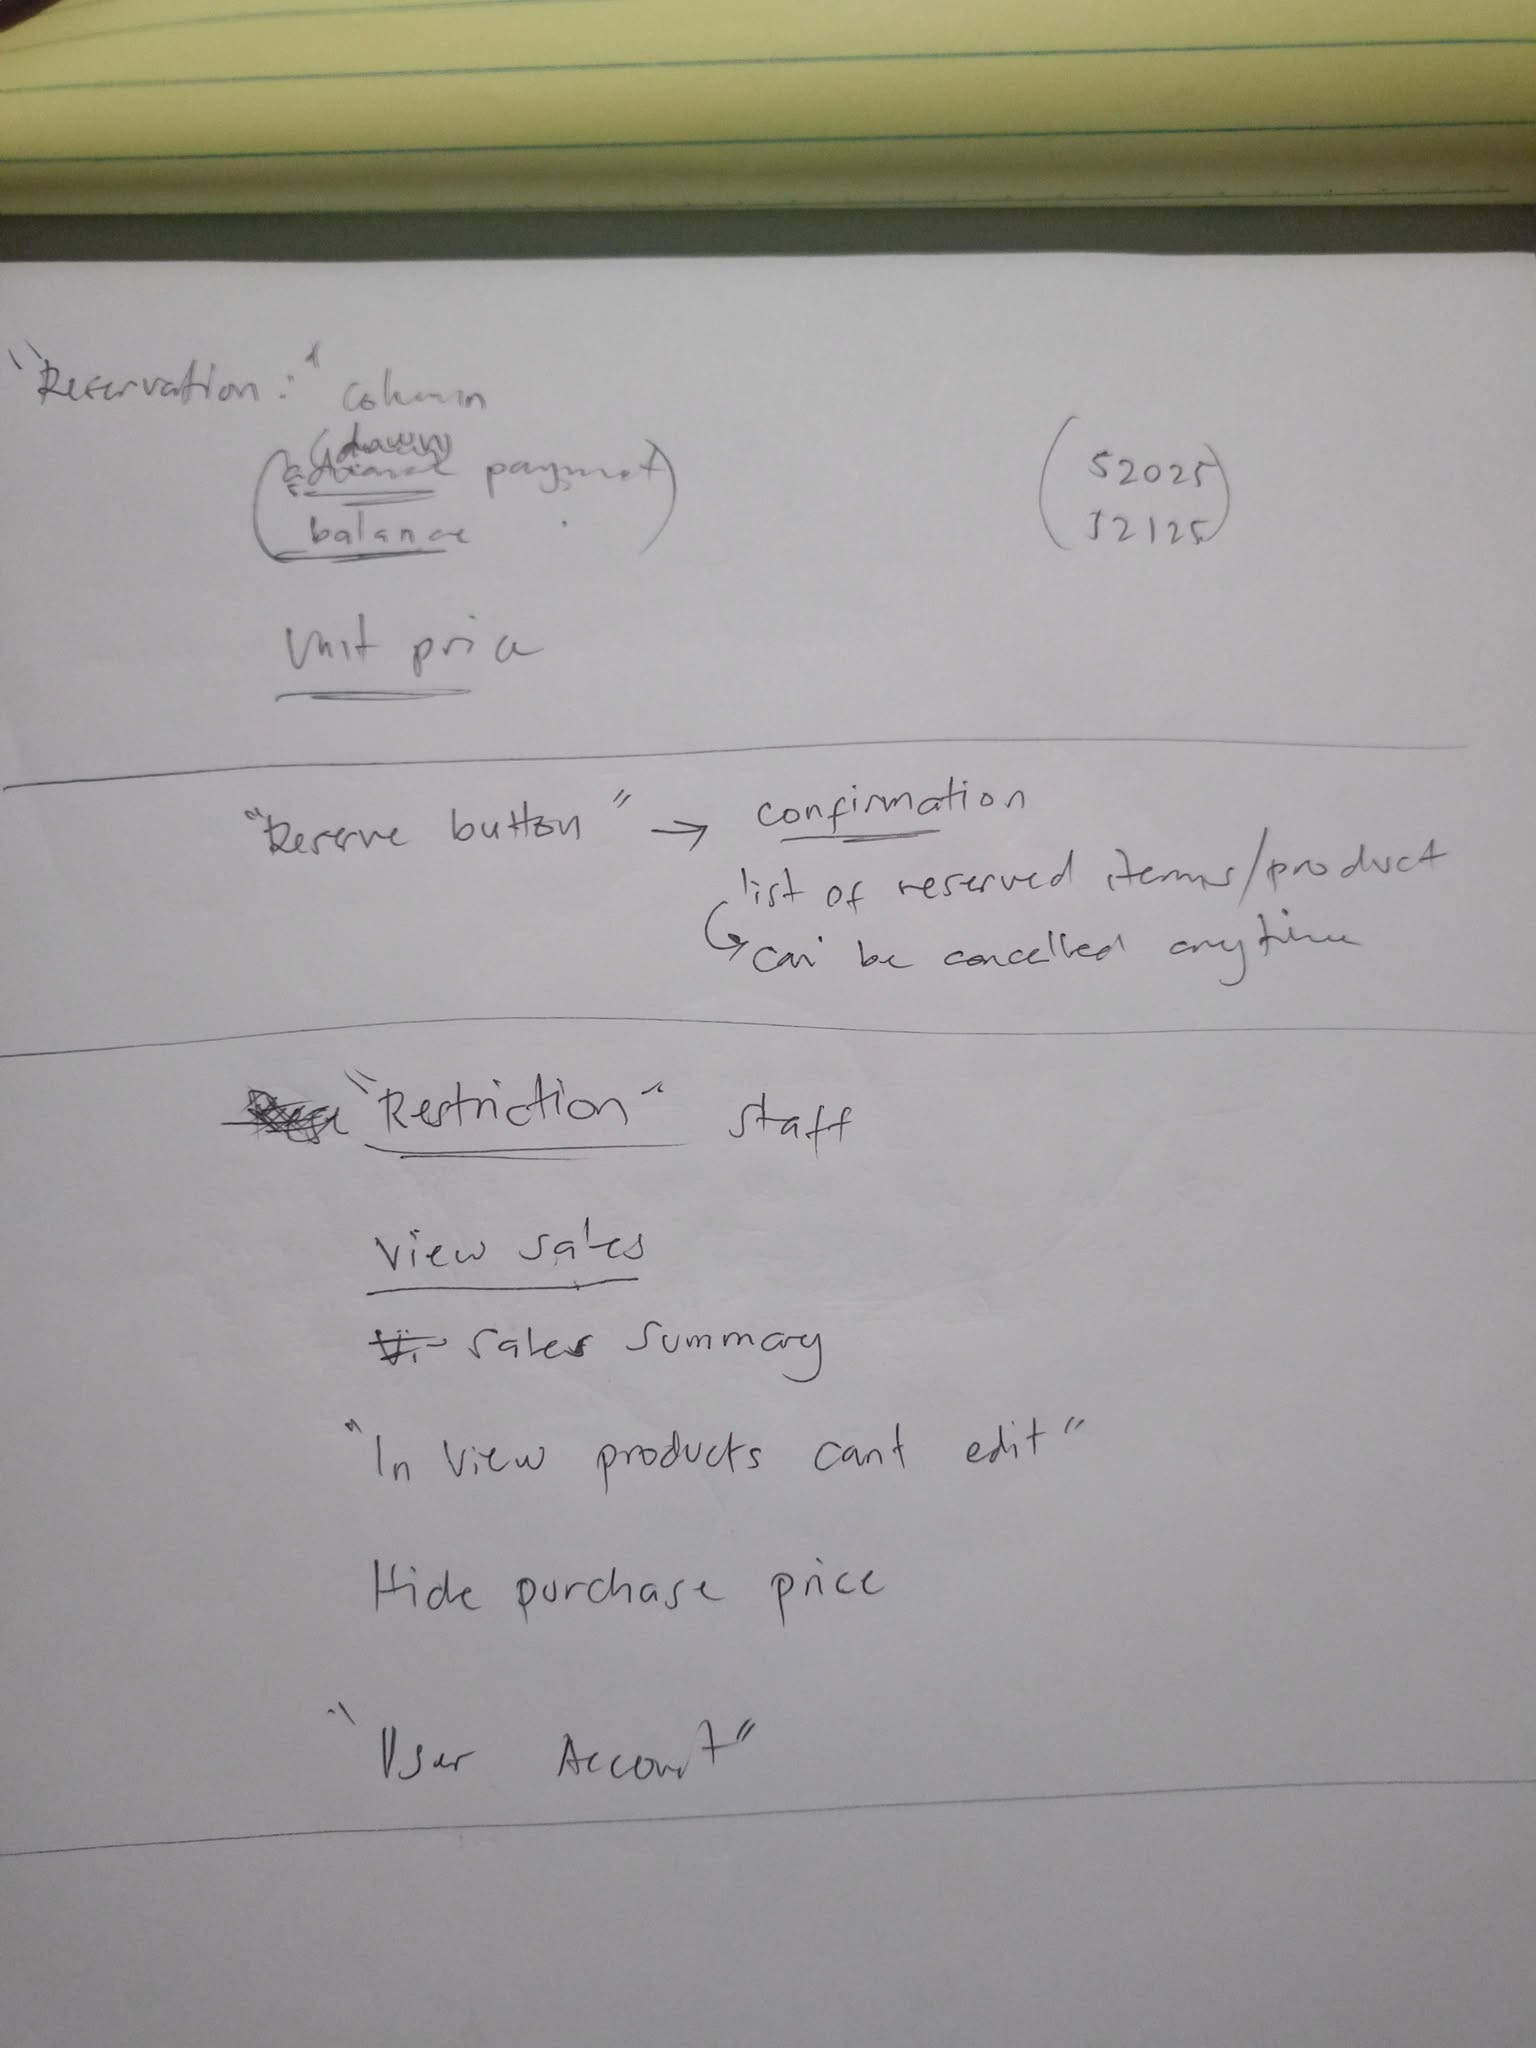 "Reservation:" column
(down)
(advance payment)
balance
(52025)
52125
Unit price
"Reserve button" → confirmation
list of reserved items/product
↳ can be cancelled anytime
"Restriction" staff
View sales
sales summary
"In View products cant edit"
Hide purchase price
"User Account"